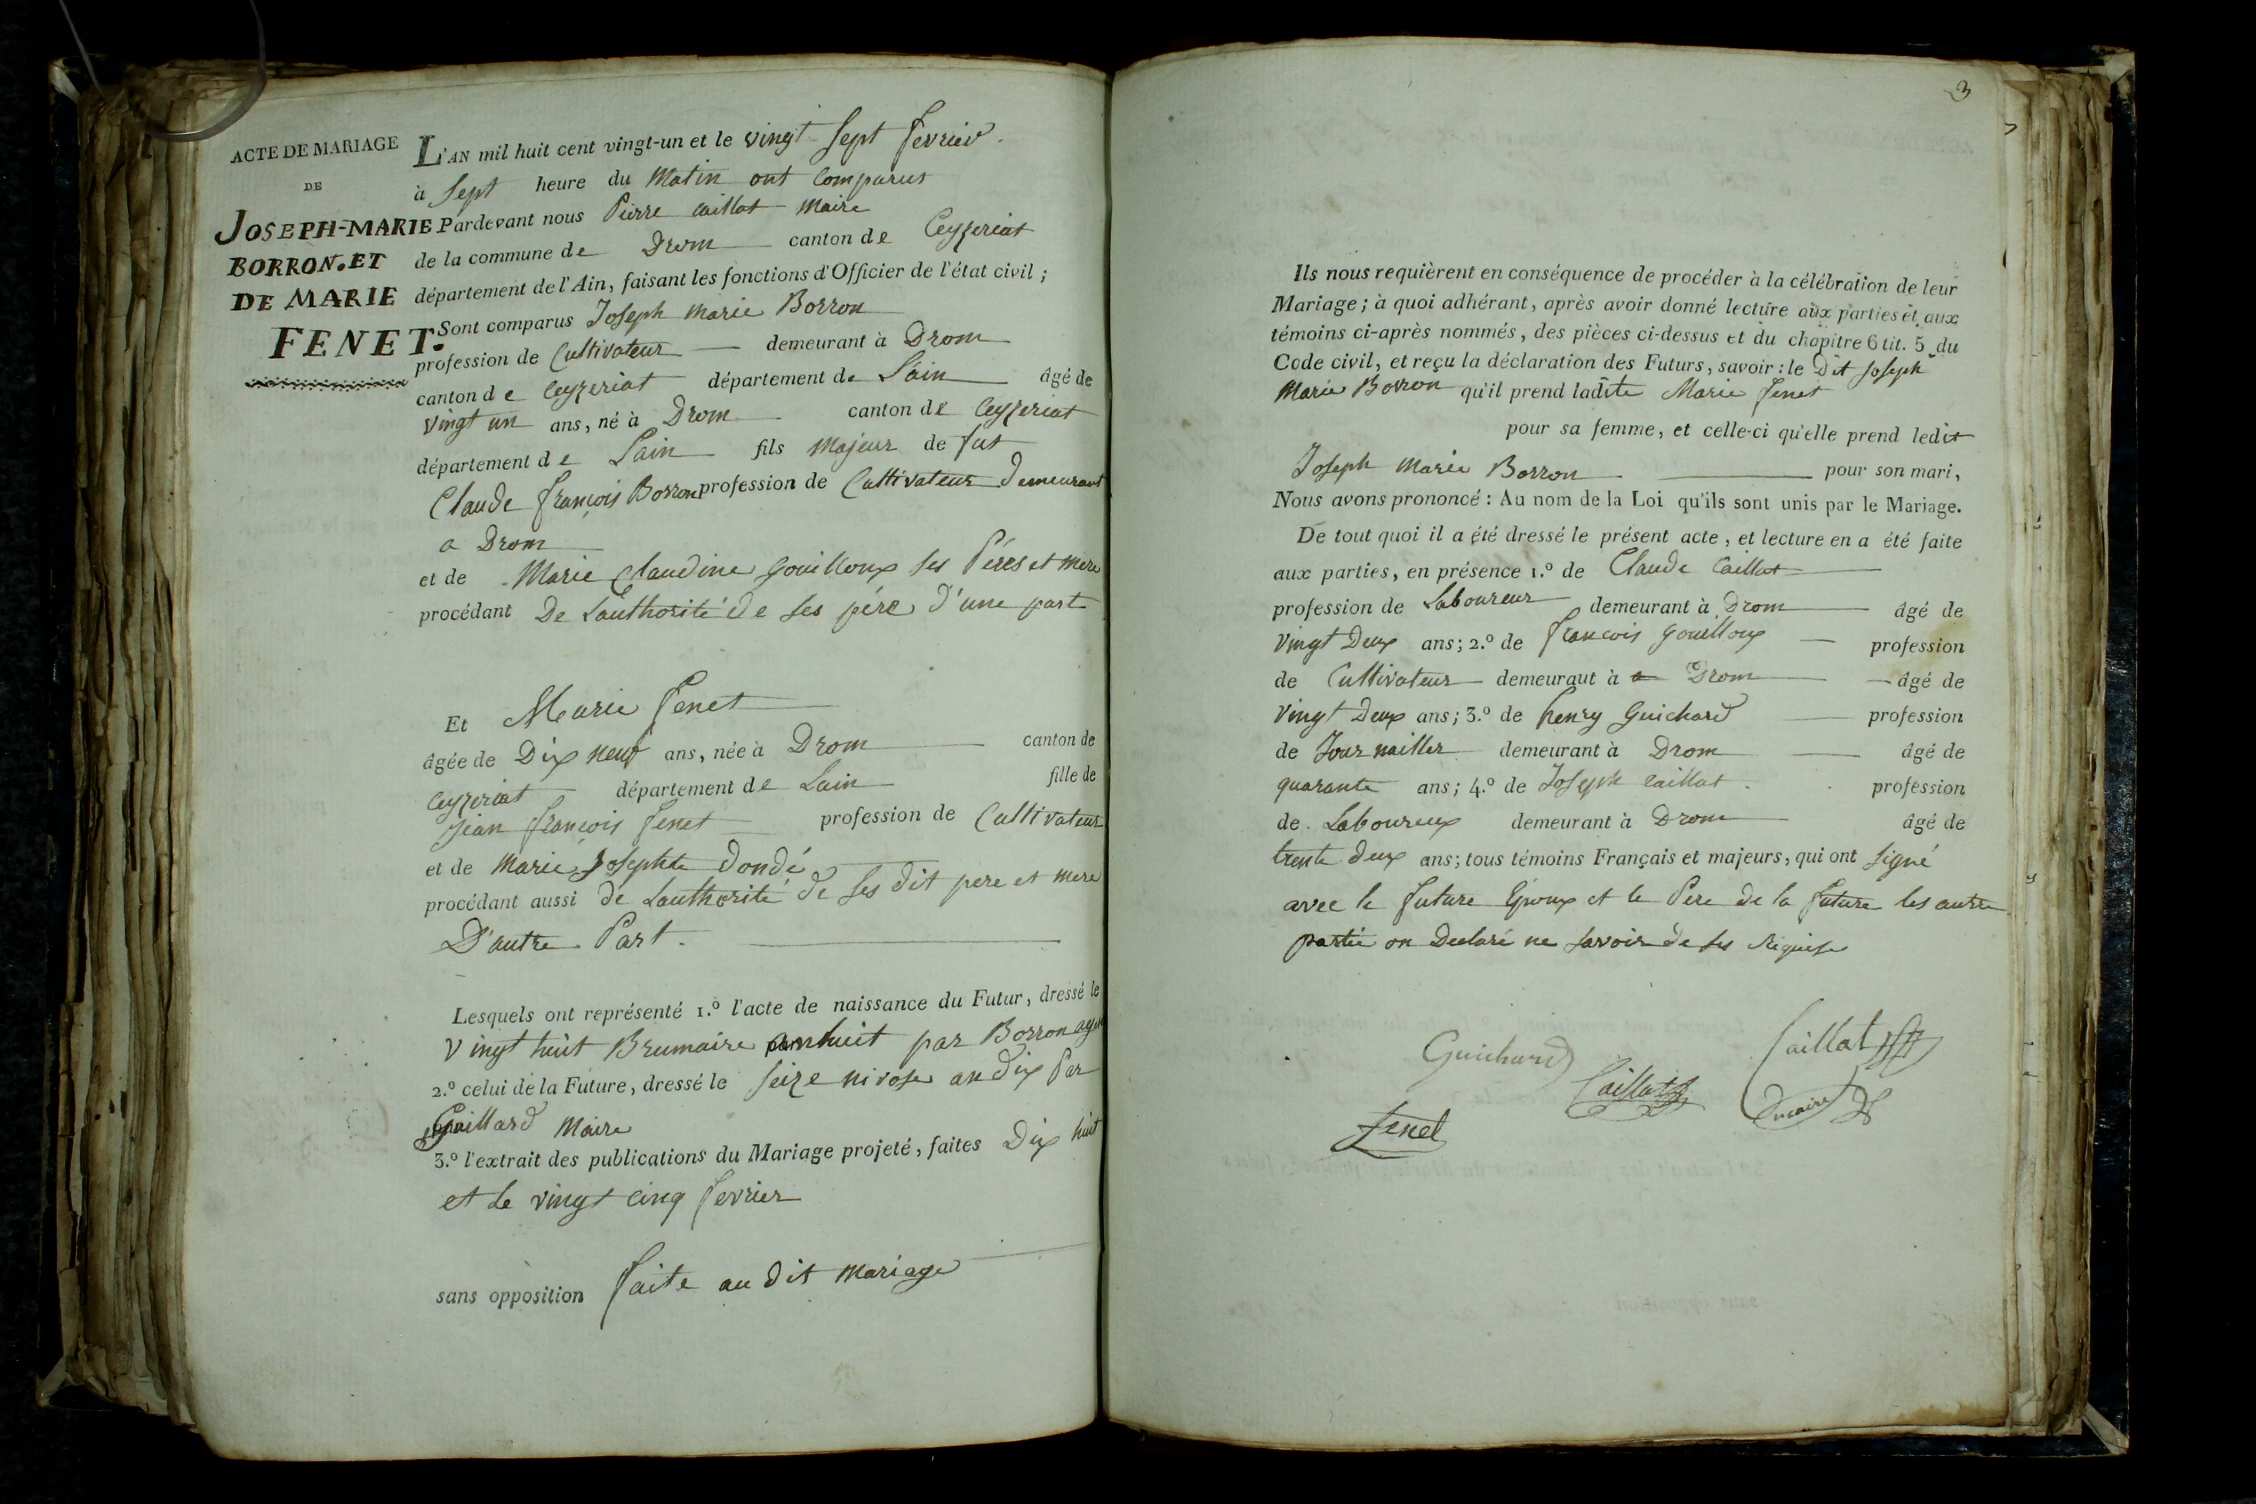 ACTE DE MARIAGE
DE
JOSEPH-MARIE
BORRON. ET
DE MARIE
FENET.
L'AN mil huit cent vingt-un et le vingt sept fevrier.
à sept heure du Matin ont comparus
Pardevant nous Pierre Caillat Maire
de la commune de Drom canton de Ceyzeriat
département de l'Ain, faisant les fonctions d'Officier de l'état civil ;
Sont comparus Joseph Marie Borron
profession de Cultivateur demeurant à Drom
canton de Ceyzeriat département de L'ain âgé de
vingt un ans, né à Drom canton de Ceyzeriat
département de Lain fils Majeur de fut
Claude françois Borron profession de Cultivateur demeurant
a Drom
et de Marie Claudine Gouilloux ses Péres et mere
procédant De Lauthorité de ses pére d'une part
Et Marie fenet
âgée de Dix neuf ans, née à Drom canton de
Ceyzeriat département de Lain fille de
Jean françois fenet profession de Cultivateur
et de Marie Josephte Dondé
procédant aussi de Lauthorité de ses dit pere et mere
D'autre Part.
Lesquels ont représenté 1.º l'acte de naissance du Futur, dressé le
vingt huit Brumaire an huit par Borron agent
2.º celui de la Future, dressé le seize nivose an dix Par
Gaillard Maire
3.º l'extrait des publications du Mariage projeté, faites Dix huit
et Le vingt cinq fevrier
sans opposition faite au dit Mariage
3
Ils nous requièrent en conséquence de procéder à la célébration de leur
Mariage ; à quoi adhérant, après avoir donné lecture aux parties et aux
témoins ci-après nommés, des pièces ci-dessus et du chapitre 6 tit. 5 du
Code civil, et reçu la déclaration des Futurs, savoir : le Dit Joseph
Marie Borron qu'il prend ladite Marie fenet
pour sa femme, et celle-ci qu'elle prend ledit
Joseph Marie Borron pour son mari,
Nous avons prononcé : Au nom de la Loi qu'ils sont unis par le Mariage.
De tout quoi il a été dressé le présent acte, et lecture en a été faite
aux parties, en présence 1.º de Claude Caillat
profession de Laboureur demeurant à Drom âgé de
vingt Deux ans ; 2.º de françois Gouilloux profession
de Cultivateur demeuraut à a Drom âgé de
vingt Deux ans ; 3.º de henry Guichard profession
de Journailler demeurant à Drom âgé de
quarante ans ; 4.º de Joseph Caillat profession
de Laboureux demeurant à Drom âgé de
trente deux ans ; tous témoins Français et majeurs, qui ont signé
avec le future Epoux et le Pere de la future les autre
partie on Declaré ne savoir de ses Requise
Guichard
Caillat
Caillat
Ducaire
fenet